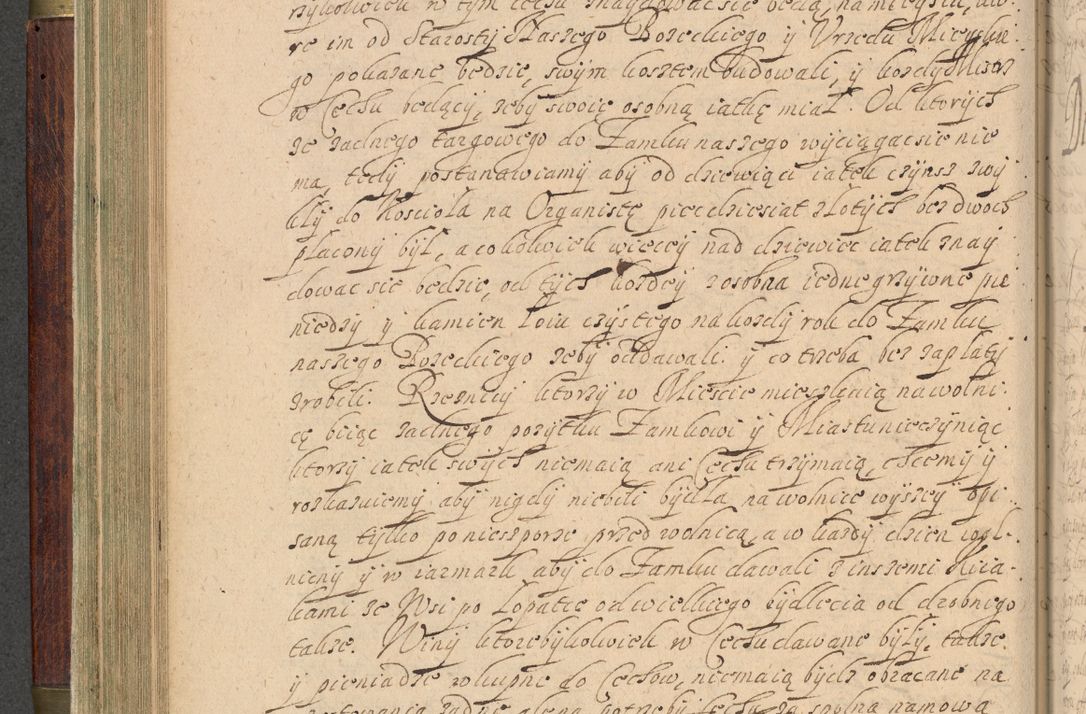 rzykolwiek w tym Cechu znaydować się będą, na mieyscu, któ
re im od Starosty Naszego Bozeckiego y Vrzędu Mieyskie
go pokazane będzie, swym kosztem budowali, y kozdy Mistrz
w Cechu będący, zeby swoię osobną iatkę miał. Od ktorych
ze zadnego targowego do Zamku naszego wyciągac się nie
ma, tedy postanawiamy aby od dziewiąci iatek czynsz zwy
kły do Kosciola na Organistę piecdziesiat złotych bez dwoch
płacony był, a cokolwiek więcey nad dziewięc iatek znay
dowac sie będzie, od tych kozdey zosobna iedne grzywnę pie
niędzy y kamien Łoiu czystego na kozdy rok do Zamku
naszego Bozeckiego zeby oddawali. y co trzeba bez zapłaty
zrobili. Rzeznicy ktorzy w Miescie mieszkaią na wolni
cę biiąc zadnego pozytku Zamkowi y Miastu nieczyniąc
ktorzy iatek swych niemaią ani Cechu trzymaią, chcemy y
roskazuiemy aby nigdy niebili bydła na wolnicę wyszey opi
saną tylko po nieszporze przed wolnicą, a w kazdy dzien wol
nieny y w iarmark aby do Zamku dawali z inszemi Rzeza
kami ze Wsi po Łopatce od wielkiego bydlęcia od drobnego
takze. Winy ktorebykolwiek w Cechu dawane były, takze
y pieniadze wkupne do Cechow, niemaią bydz obracane na
zadne potrzeby Cechu za spolną namową